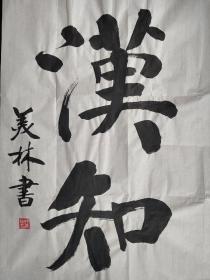 漢知
美林書